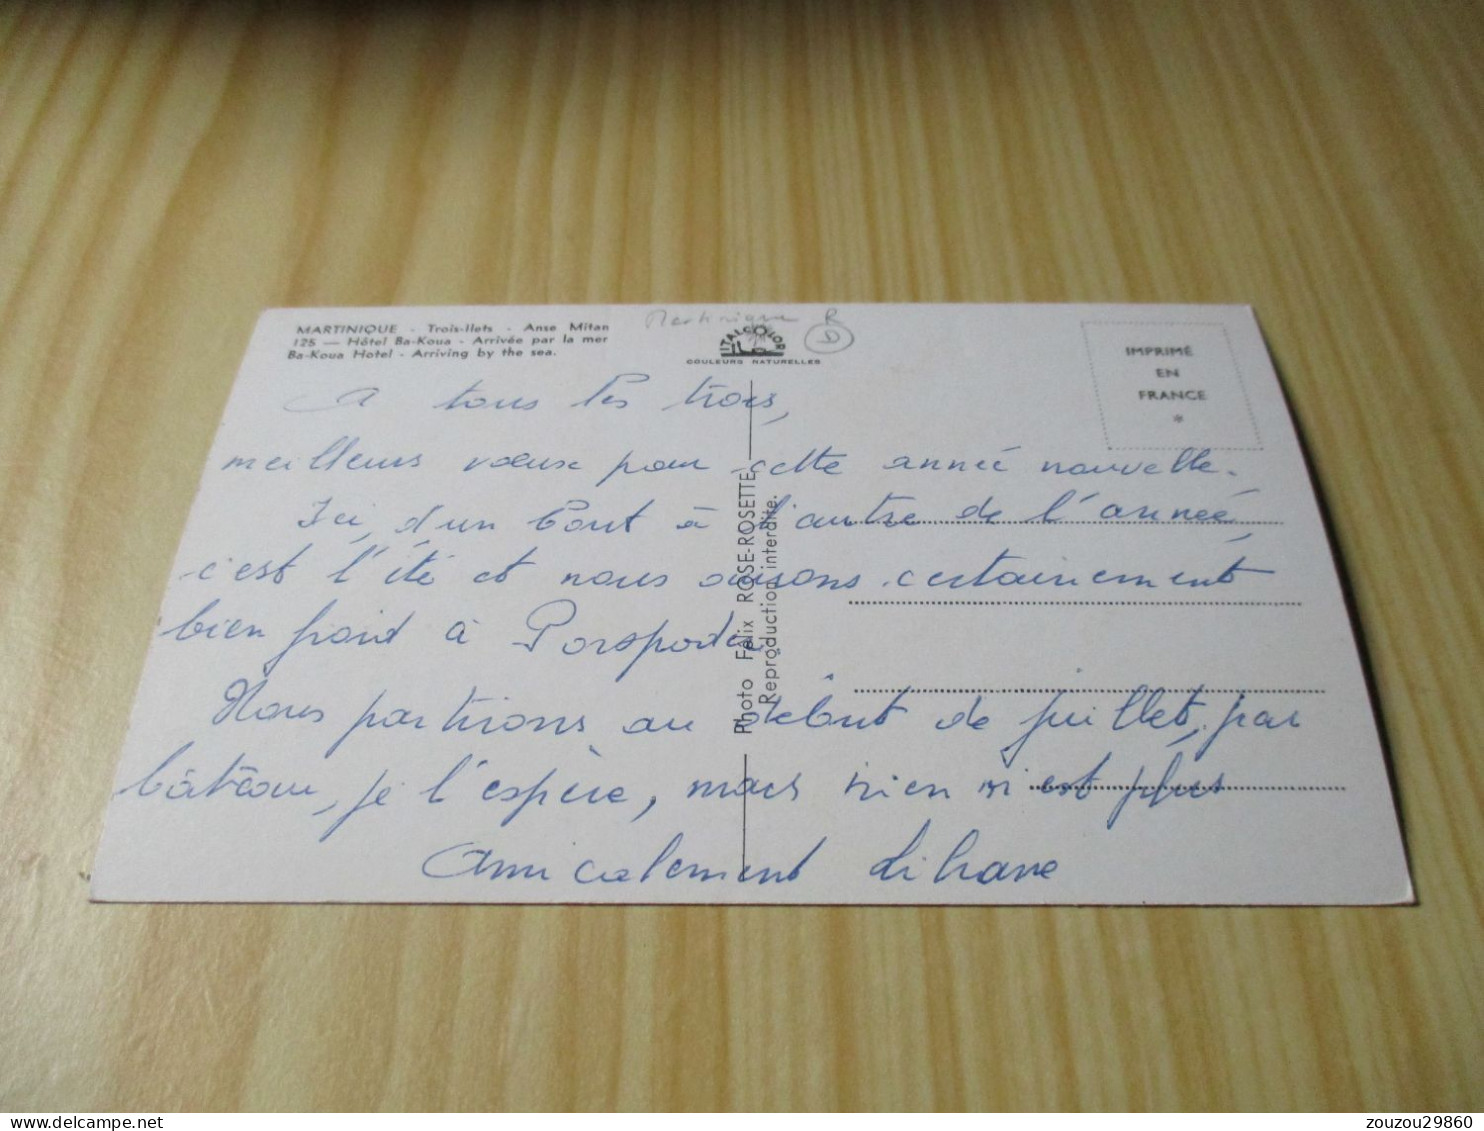 MARTINIQUE - Trois-Ilets - Anse Mitan
125 — Hôtel Ba-Koua - Arrivée par la mer
Ba-Koua Hotel - Arriving by the sea.
Martinique R
D
ITALCOLOR
COULEURS NATURELLES
IMPRIMÉ
EN
FRANCE
*
A tous les trois,
meilleurs vœux pour cette année nouvelle.
Ici, d'un bout à l'autre de l'année,
c'est l'été et nous aurons certainement
bien froid à Porspoder
Nous partirons au début de juillet, par
bâteau, je l'espère, mais rien n'est plus
Amicalement Liliane
Photo Félix ROSE-ROSETTE
Reproduction interdite.
zouzou29860